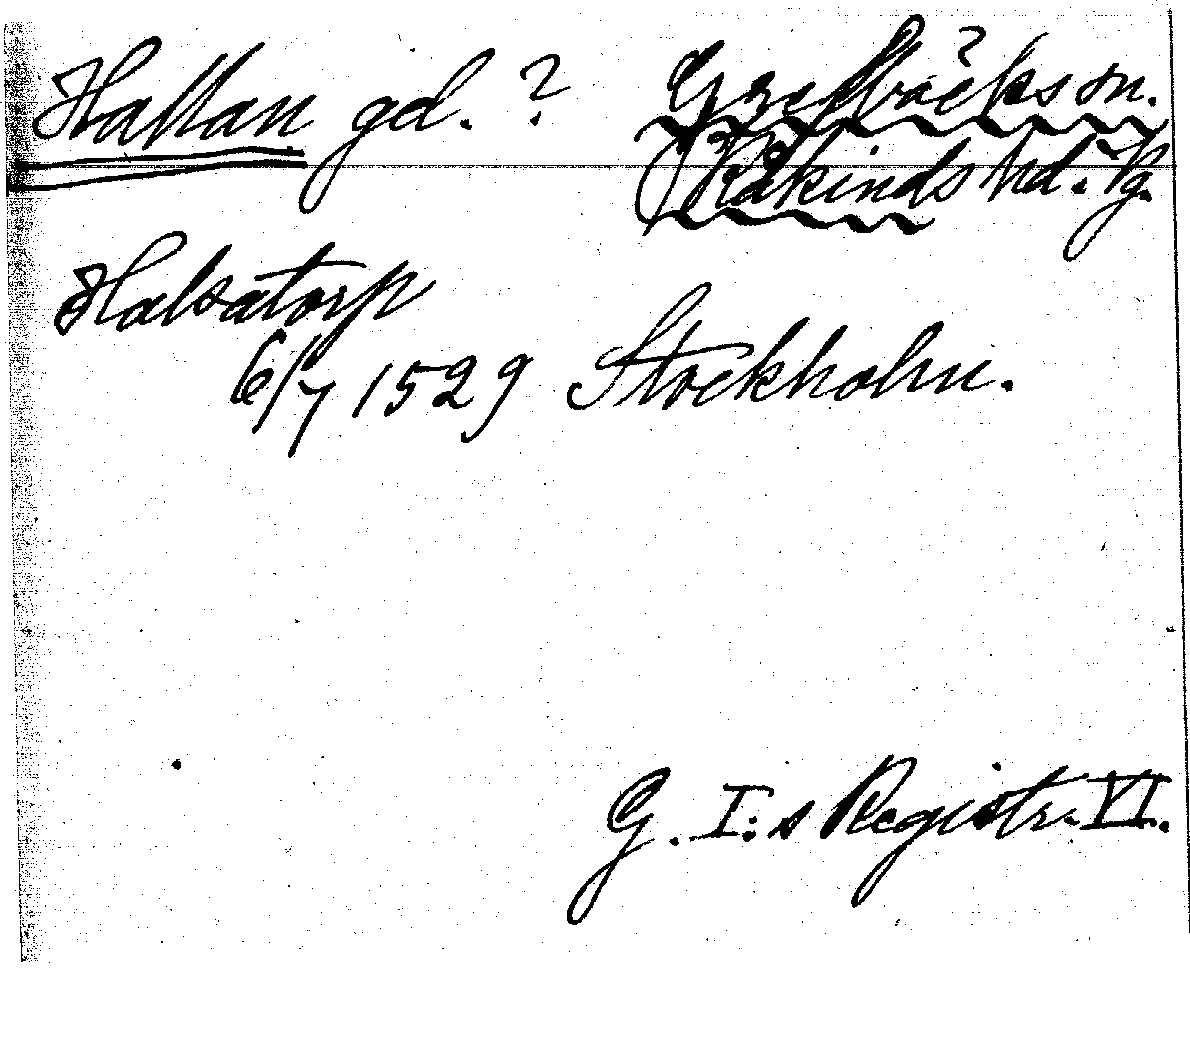 Hallan gd. ? Grefbäcks sn.
Kåkinds hd. Vg.
Halsatorp
6/7 1529 Stockholm.
G. I:s Registr. VI.